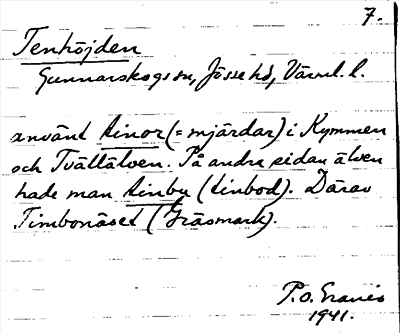 7.
Tenhöjden
Gunnarskogs sn, Jösse hd, Värml. l.
använt tinor (= mjärdar) i Kymmen
och Tvällälven. På andra sidan älven
hade man tinbu (tinbod). Därav
Timbonäset (Gräsmark).
P.O. Eranés
1941.